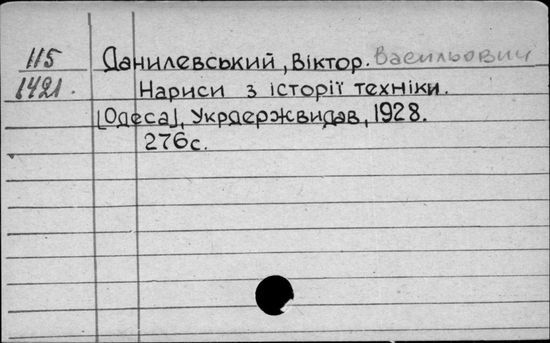 115
1421.
Данилевський, Віктор. Васильович
Нариси з історії техніки.
[Одеса], Укрдержвидав, 1928.
276с.